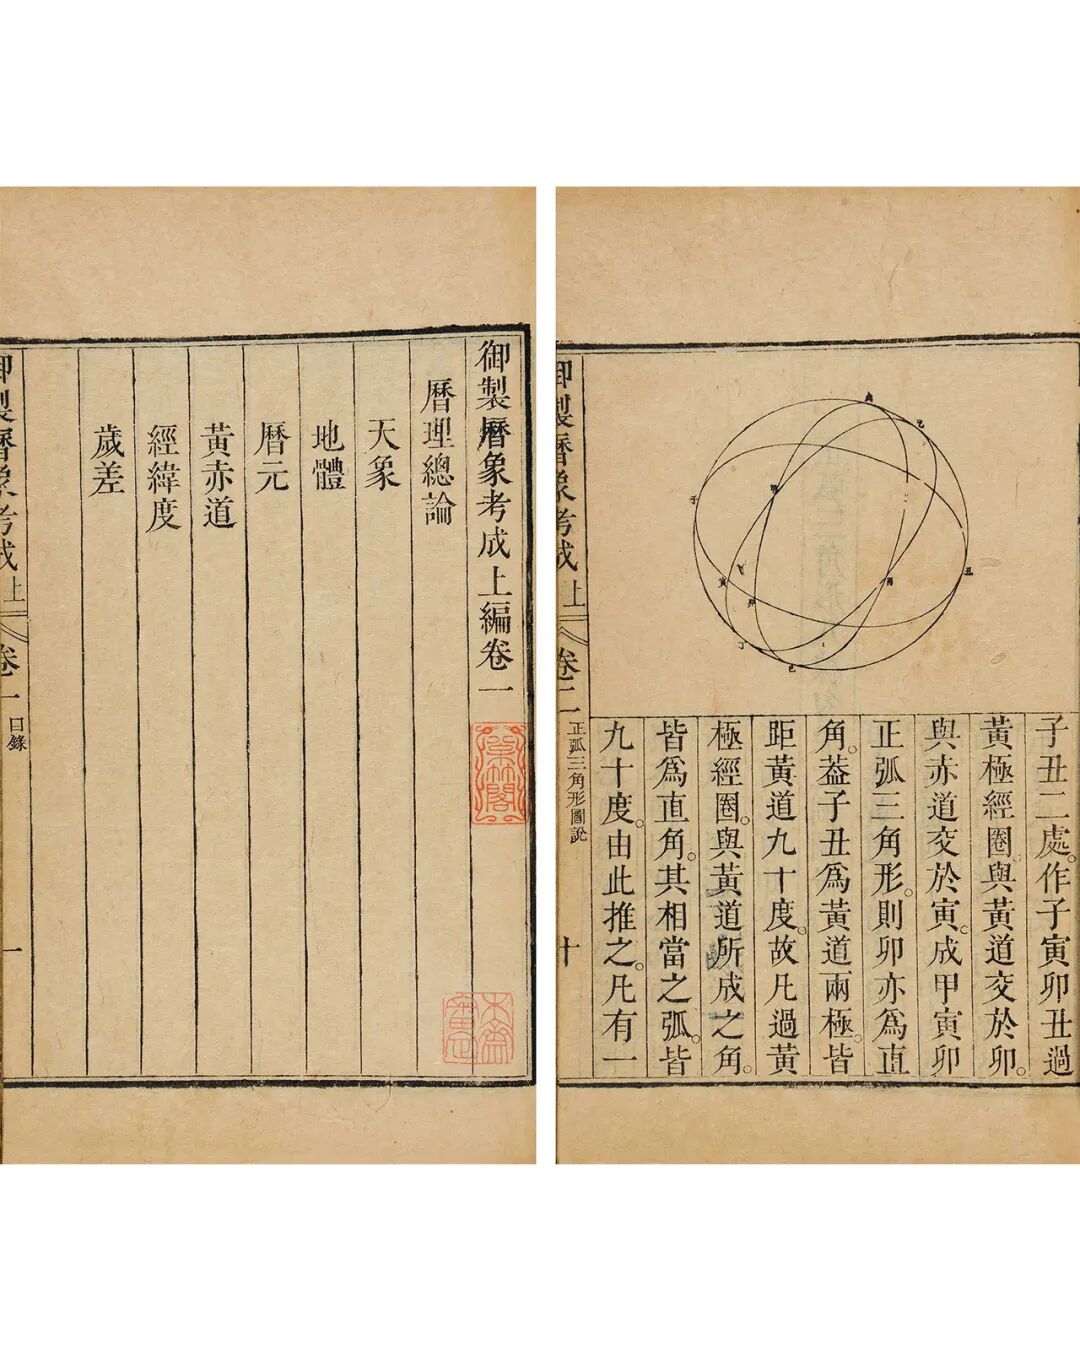 御製曆象考成上編卷一
曆理總論
天象
地體
曆元
黃赤道
經緯度
歲差
御製曆象考成上
卷一
目錄
一
子丑二處。作子寅卯丑過
黃極經圈。與黃道交於卯。
與赤道交於寅。成甲寅卯
正弧三角形。則卯亦爲直
角。葢子丑爲黃道兩極。皆
距黃道九十度。故凡過黃
極經圈。與黃道所成之角。
皆爲直角。其相當之弧。皆
九十度。由此推之。凡有一
御製曆象考成上
卷二
正弧三角形圖說
十
子
丑
寅
卯
丁